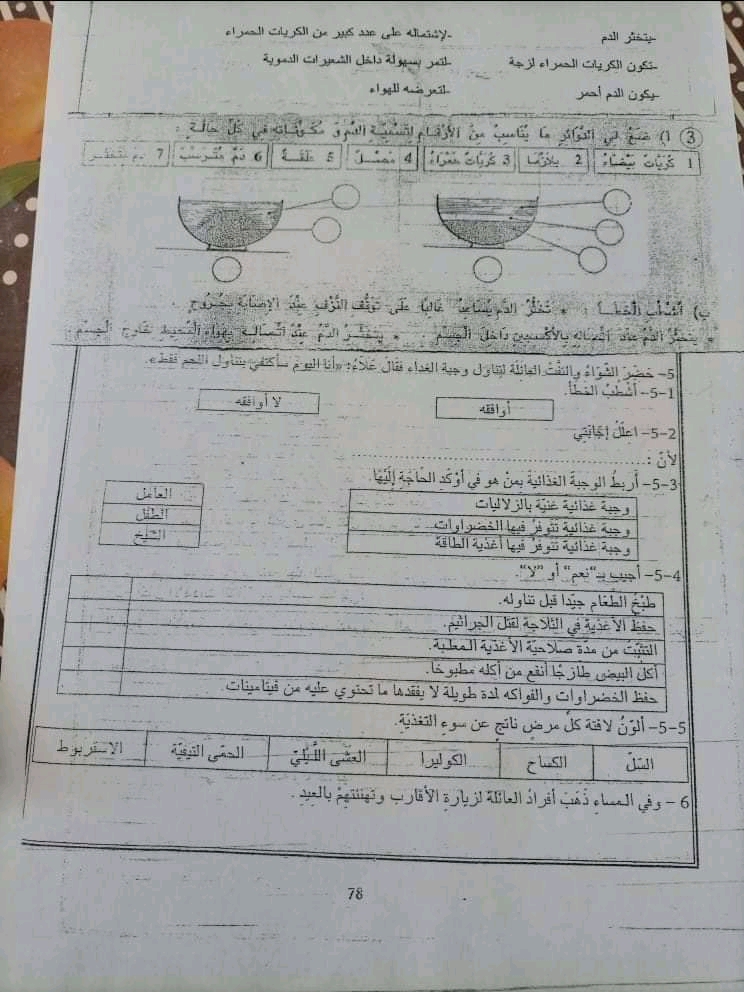 -يتخثر الدم -لإشتماله على عدد كبير من الكريات الحمراء
-تكون الكريات الحمراء لزجة -لتمر بسهولة داخل الشعيرات الدموية
-يكون الدم أحمر -لتعرضه للهواء
3 أ) ضع في الدوائر ما يناسب من الأرقام لتسمية الدم و مكوناته في كل حالة :
1 كريات بيضاء 2 بلازما 3 كريات حمراء 4 مصل 5 علقة 6 دم مترسب 7 دم متخثر
ب) أشطب الخطأ : * تخثر الدم يساعد غالبا على توقف النزف عند الإصابة بجروح .
* يتخثر الدم عند اتصاله بالأكسجين داخل الجسم * يتخثر الدم عند اتصاله بهواء المحيط خارج الجسم .
5- حضر الشواء والتفت العائلة لتناول وجبة الغداء فقال علاء: «أنا اليوم سأكتفي بتناول اللحم فقط».
5-1- أشطب الخطأ.
أوافقه لا أوافقه
5-2- اعلل إجابتي
لأن :................................
5-3- أربط الوجبة الغذائية بمن هو في أوكد الحاجة إليها.
وجبة غذائية غنية بالزلاليات العامل
وجبة غذائية تتوفر فيها الخضراوات الطفل
وجبة غذائية تتوفر فيها أغذية الطاقة الشيخ
5-4- أجيب بـ"نعم" أو "لا".
طبخ الطعام جيدا قبل تناوله.
حفظ الأغذية في الثلاجة لقتل الجراثيم.
التثبت من مدة صلاحية الأغذية المعلبة.
أكل البيض طازجا أنفع من أكله مطبوخا.
حفظ الخضراوات والفواكه لمدة طويلة لا يفقدها ما تحتوي عليه من فيتامينات
5-5- ألون لافتة كل مرض ناتج عن سوء التغذية.
السل الكساح الكوليرا العشى الليلي الحمى التيفية الاسقربوط
6 - وفي المساء ذهب أفراد العائلة لزيارة الأقارب وتهنئتهم بالعيد .
78